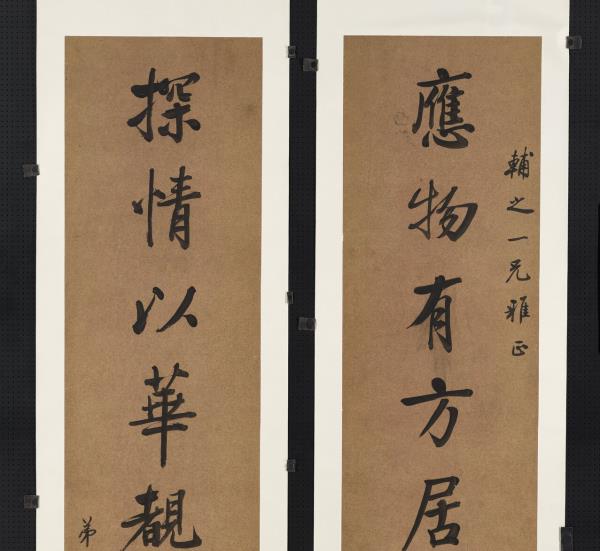 輔之一兄雅正
應物有方居
探情以華覩
弟